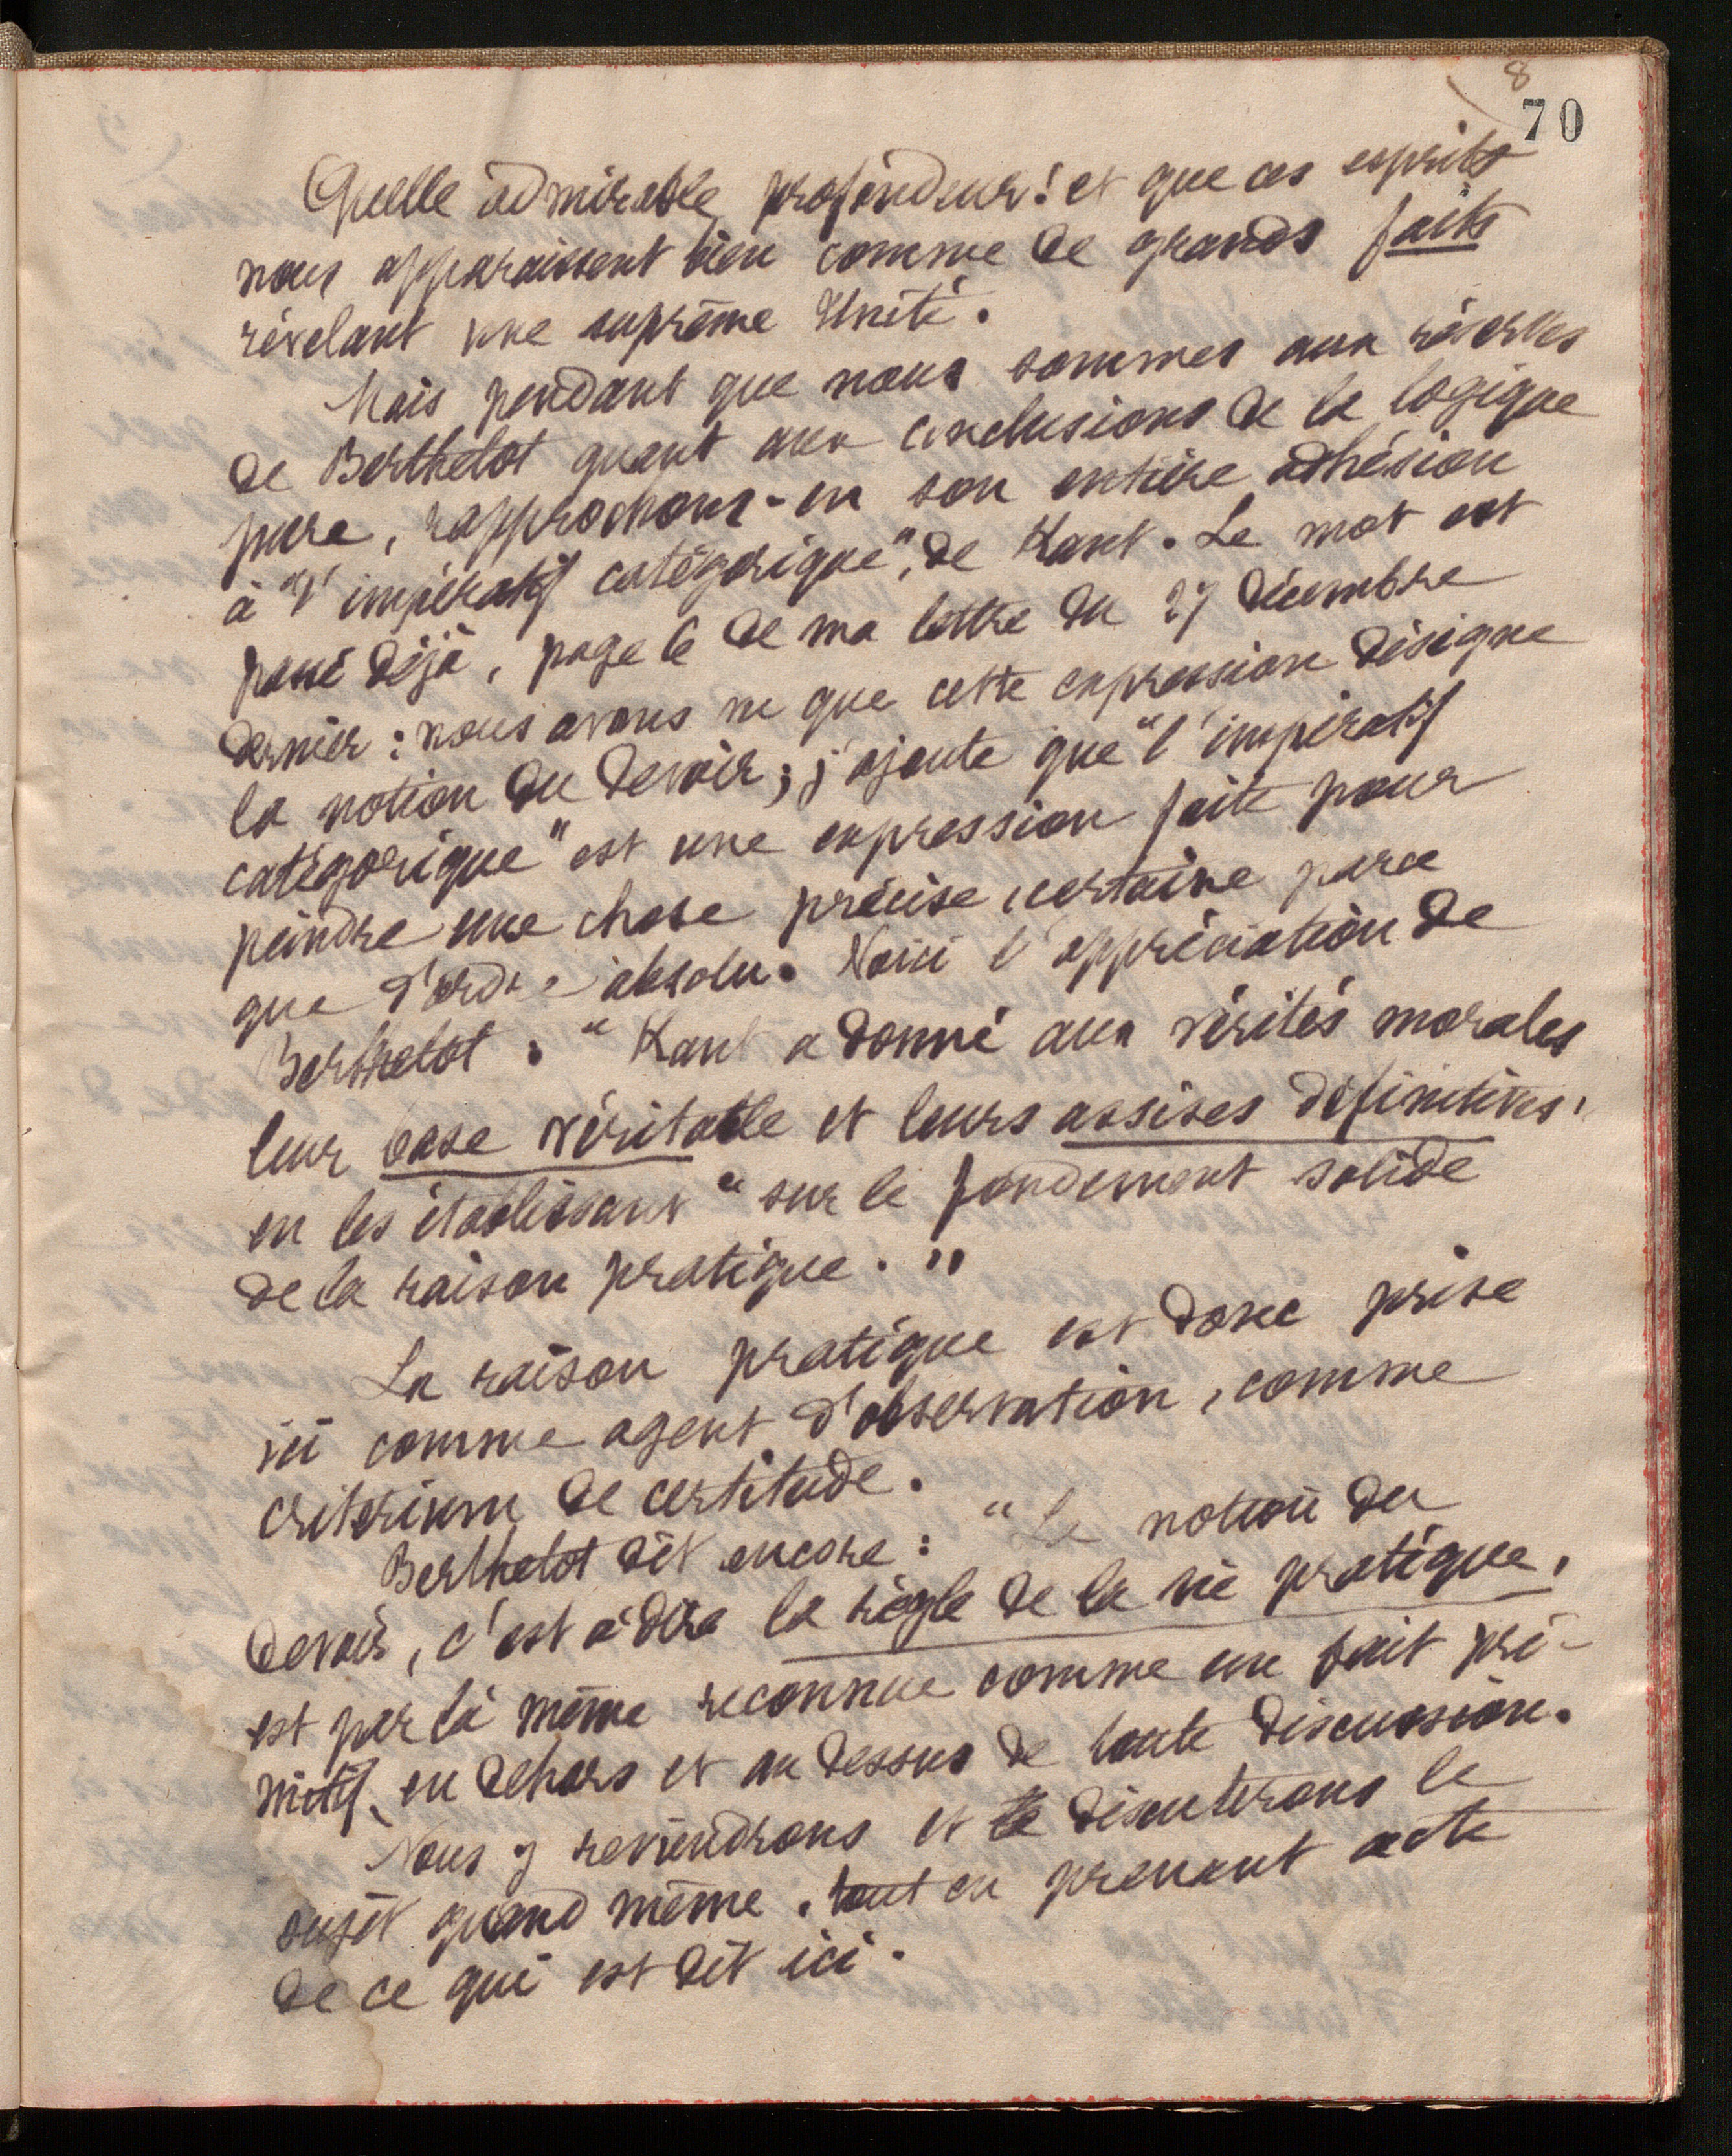 8
70
Quelle admirable profondeur! et que ces esprits
nous apparaissent bien comme de grands faits
révélant une suprême Unité.
Mais pendant que nous sommes aux réserves
de Berthelot quant aux conclusions de la logique
pure, rapprochons-en son entière adhésion
à "l'impératif catégorique", de Kant. Le mot est
passé déjà, page 6 de ma lettre du 27 décembre
dernier: nous avons vu que cette expression désigne
la notion du devoir; j'ajoute que "l'impératif
catégorique" est une expression faite pour
peindre une chose précise, certaine parce
que d'ordre absolu. Voici l'appréciation de
Berthelot: "Kant a donné aux vérités morales
leur base véritable et leurs assises définitives,
en les établissant "sur le fondement solide
de la raison pratique."
La raison pratique est donc prise
ici comme agent d'observation, comme
criterium de certitude.
Berthelot dit encore: "La notion du
devoir, c'est à dire la règle de la vie pratique,
est par là même reconnue comme un fait pri-
mitif, en dehors et au dessus de toute discussion.
Nous y reviendrons et le discuterons le
sujet quand même. tout en prenant acte
de ce qui est dit ici.